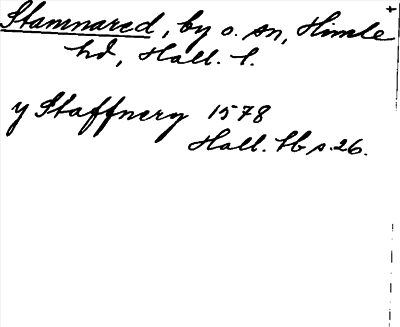 Stamnared, by o. sn, Himle
hd, Hall. l.
y Staffnery 1578
Hall. tb s. 26.